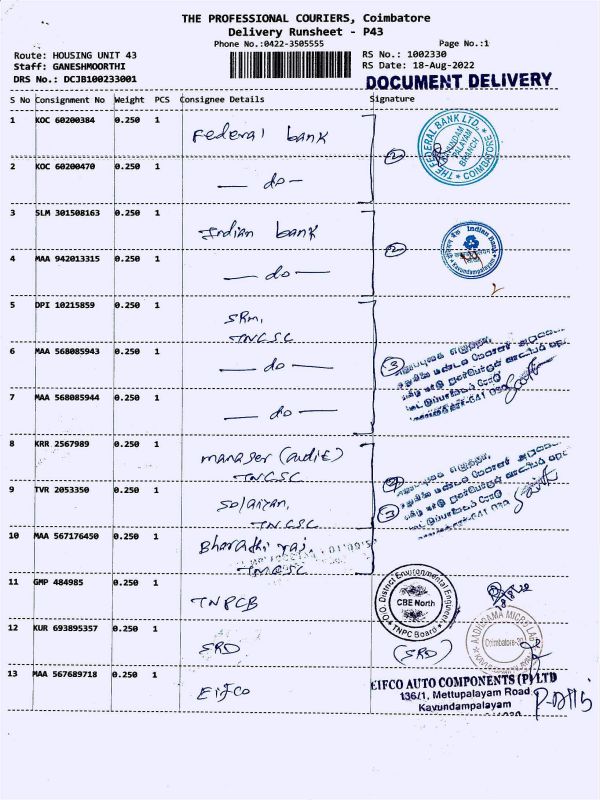 THE PROFESSIONAL COURIERS, Coimbatore
Delivery Runsheet - P43
Phone No.:0422-3505555 Page No.:1
Route: HOUSING UNIT 43 RS No.: 1002330
Staff: GANESHMOORTHI RS Date: 18-Aug-2022
DRS No.: DCJB100233001 DOCUMENT DELIVERY
S No Consignment No Weight PCS Consignee Details Signature
1 KOC 60200384 0.250 1 Federal bank
THE FEDERAL BANK LTD. KAVUNDAM PALAYAM BRANCH COIMBATORE
2
2 KOC 60200470 0.250 1 — do —
3 SLM 301508163 0.250 1 Indian bank
2 Indian Bank Kavundampalayam
4 MAA 942013315 0.250 1 — do —
5 DPI 10215859 0.250 1 SRM,
TNCSC
6 MAA 568085943 0.250 1 — do — 3
7 MAA 568085944 0.250 1 — do —
8 KRR 2567989 0.250 1 manager (audit)
TNCSC
9 TVR 2053350 0.250 1 Solaiyan,
TNCSC 3
10 MAA 567176450 0.250 1 Bharathi raj
TNCSC
11 GMP 484985 0.250 1 TNPCB
O.O. District Environmental Engineer CBE North TNPC Board
12 KUR 693895357 0.250 1 SRD (SRD)
Coimbatore-30
13 MAA 567689718 0.250 1 Eifco
EIFCO AUTO COMPONENTS (P) LTD
136/1, Mettupalayam Road
Kavundampalayam